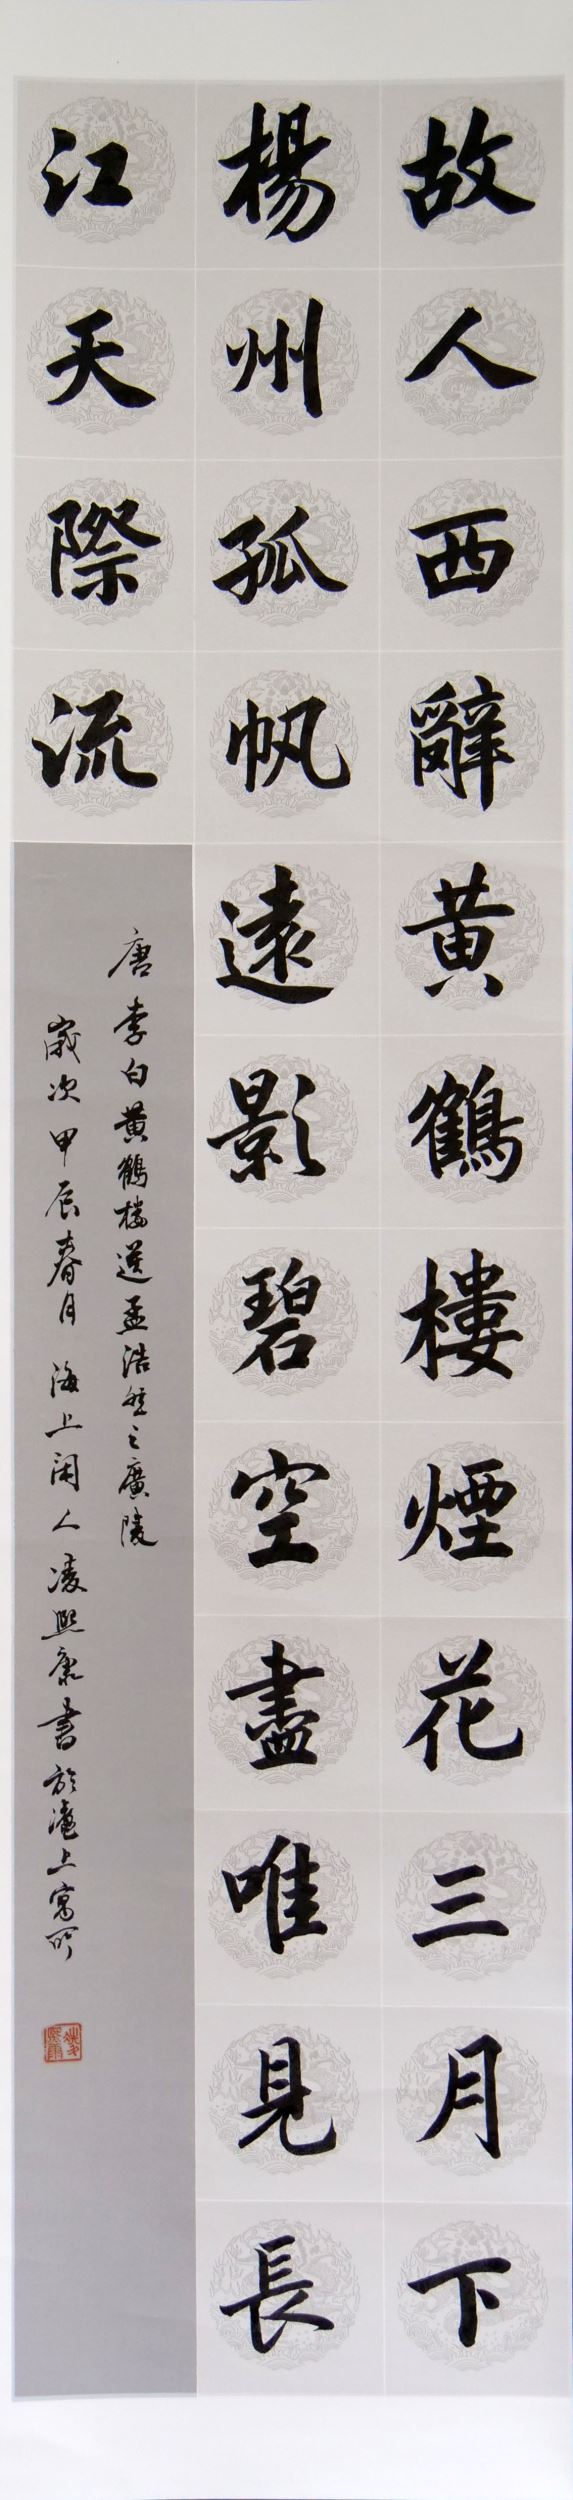 故人西辭黃鶴樓煙花三月下
楊州孤帆遠影碧空盡唯見長
江天際流
唐李白黃鶴樓送孟浩然之廣陵
歲次甲辰春月海上閑人凌熙康書於滬上寓所